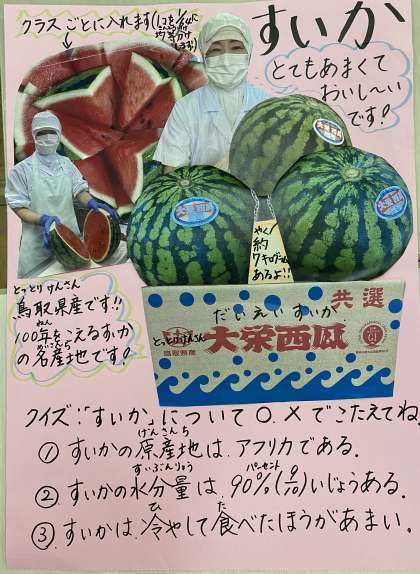 クラスごとに入れます
すいか
とてもあまくて
おいし〜い
です!
やく
約
7キログラム
あるよ!!
とっとりけんさん
鳥取県産です!!
ねん
100年をこえるすいか
めいさんち
の名産地です!
だいえいすいか
共選
とっとりけんさん
鳥取県産
大栄西瓜
クイズ:「すいか」について○.×でこたえてね
げんさんち
①すいかの原産地は.アフリカである.
すいぶんりょう パーセント
②すいかの水分量は.90%(9/10)いじょうある.
ひ た
③すいかは.冷やして食べたほうがあまい.